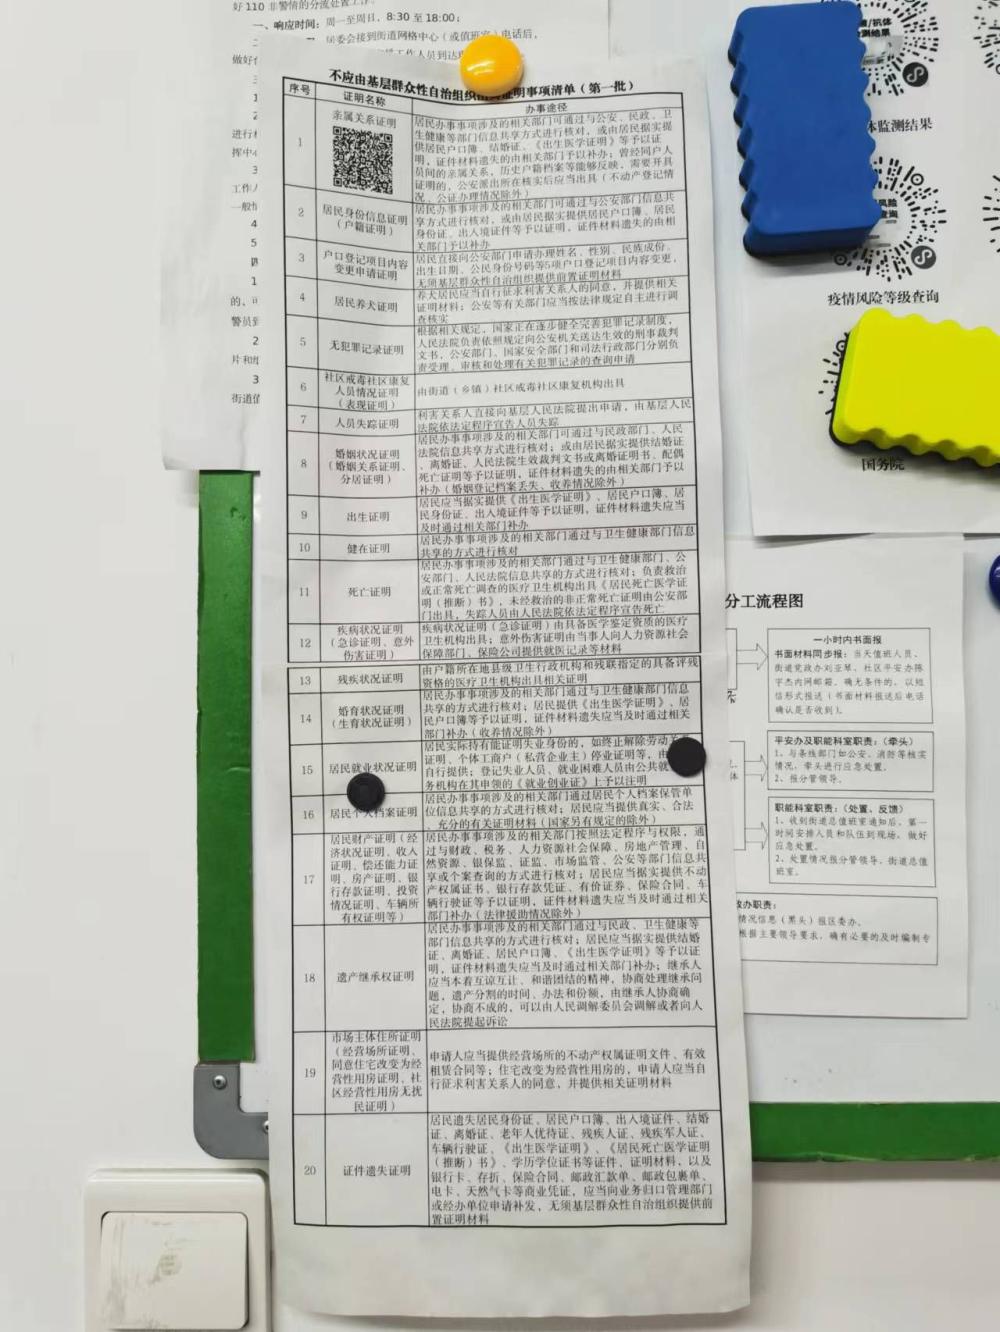 好110非警情的分流处置工作。
一、响应时间：周一至周日，8:30至18:00；
居委会接到街道网格中心（或值班室）电话后，
不应由基层群众性自治组织出具证明事项清单（第一批）
序号
证明名称
办事途径
1
亲属关系证明
居民办事事项涉及的相关部门可通过与公安、民政、卫
生健康等部门信息共享方式进行核对，或由居民据实提
供居民户口簿、结婚证、《出生医学证明》等予以证
明，证件材料遗失的由相关部门予以补办；曾经同户人
员间的亲属关系，历史户籍档案等能够反映，需要开具
证明的，公安派出所在核实后应当出具（不动产登记情
况、公证办理情况除外）
2
居民身份信息证明
（户籍证明）
居民办事事项涉及的相关部门可通过与公安部门信息共
享方式进行核对，或由居民据实提供居民户口簿、居民
身份证、出入境证件等予以证明，证件材料遗失的由相
关部门予以补办
3
户口登记项目内容
变更申请证明
居民直接向公安部门申请办理姓名、性别、民族成份、
出生日期、公民身份号码等5项户口登记项目内容变更，
无须基层群众性自治组织提供前置证明材料
4
居民养犬证明
养犬居民应当自行征求利害关系人的同意，并提供相关
证明材料；公安等有关部门应当按法律规定自主进行调
查核实
5
无犯罪记录证明
根据相关规定，国家正在逐步健全完善犯罪记录制度，
人民法院负责依照规定向公安机关送达生效的刑事裁判
文书，公安部门、国家安全部门和司法行政部门分别负
责受理、审核和处理有关犯罪记录的查询申请
6
社区戒毒社区康复
人员情况证明
（表现证明）
由街道（乡镇）社区戒毒社区康复机构出具
7
人员失踪证明
利害关系人直接向基层人民法院提出申请，由基层人民
法院依法定程序宣告人员失踪
8
婚姻状况证明
（婚姻关系证明、
分居证明）
居民办事事项涉及的相关部门可通过与民政部门、人民
法院信息共享方式进行核对；或由居民据实提供结婚证
、离婚证、人民法院生效裁判文书或离婚证明书、配偶
死亡证明等予以证明，证件材料遗失的由相关部门予以
补办（婚姻登记档案丢失、收养情况除外）
9
出生证明
居民应当据实提供《出生医学证明》、居民户口簿、居
民身份证、出入境证件等予以证明，证件材料遗失应当
及时通过相关部门补办
10
健在证明
居民办事事项涉及的相关部门通过与卫生健康部门信息
共享的方式进行核对
11
死亡证明
居民办事事项涉及的相关部门通过与卫生健康部门、公
安部门、人民法院信息共享的方式进行核对；负责救治
或正常死亡调查的医疗卫生机构出具《居民死亡医学证
明（推断）书》，未经救治的非正常死亡证明由公安部
门出具，失踪人员由人民法院依法定程序宣告死亡
12
疾病状况证明
（急诊证明、意外
伤害证明）
疾病状况证明（急诊证明）由具备医学鉴定资质的医疗
卫生机构出具；意外伤害证明由当事人向人力资源社会
保障部门、保险公司提供就医记录等材料
13
残疾状况证明
由户籍所在地县级卫生行政机构和残联指定的具备评残
资格的医疗卫生机构出具相关证明
14
婚育状况证明
（生育状况证明）
居民办事事项涉及的相关部门通过与卫生健康部门信息
共享的方式进行核对；居民提供《出生医学证明》、居
民户口簿等予以证明，证件材料遗失应当及时通过相关
部门补办（收养情况除外）
15
居民就业状况证明
居民实际持有能证明失业身份的，如终止解除劳动关
证明、个体工商户（私营企业主）停业证明等，由
自行提供；登记失业人员、就业困难人员由公共就
务机构在其申领的《就业创业证》上予以注明
16
居民个人档案证明
居民办事事项涉及的相关部门通过居民个人档案保管单
位信息共享的方式进行核对；居民应当提供真实、合法
、充分的有关证明材料（国家另有规定的除外）
17
居民财产证明（经
济状况证明、收入
证明、偿还能力证
明、房产证明、银
行存款证明、投资
情况证明、车辆所
有权证明等）
居民办事事项涉及的相关部门按照法定程序与权限，通
过与财政、税务、人力资源社会保障、房地产管理、自
然资源、银保监、证监、市场监管、公安等部门信息共
享或个案查询的方式进行核对；居民应当据实提供不动
产权属证书、银行存款凭证、有价证券、保险合同、车
辆行驶证等予以证明，证件材料遗失应当及时通过相关
部门补办（法律援助情况除外）
18
遗产继承权证明
居民办事事项涉及的相关部门通过与民政、卫生健康等
部门信息共享的方式进行核对；居民应当据实提供结婚
证、离婚证、居民户口簿、《出生医学证明》等予以证
明，证件材料遗失应当及时通过相关部门补办；继承人
应当本着互谅互让、和谐团结的精神，协商处理继承问
题，遗产分割的时间、办法和份额，由继承人协商确
定，协商不成的，可以由人民调解委员会调解或者向人
民法院提起诉讼
19
市场主体住所证明
（经营场所证明、
同意住宅改变为经
营性用房证明、社
区经营性用房无扰
民证明）
申请人应当提供经营场所的不动产权属证明文件、有效
租赁合同等；住宅改变为经营性用房的，申请人应当自
行征求利害关系人的同意，并提供相关证明材料
20
证件遗失证明
居民遗失居民身份证、居民户口簿、出入境证件、结婚
证、离婚证、老年人优待证、残疾人证、残疾军人证、
车辆行驶证、《出生医学证明》、《居民死亡医学证明
（推断）书》、学历学位证书等证件、证明材料，以及
银行卡、存折、保险合同、邮政汇款单、邮政包裹单、
电卡、天然气卡等商业凭证，应当向业务归口管理部门
或经办单位申请补发，无须基层群众性自治组织提供前
置证明材料
体监测结果
疫情风险等级查询
国务院
分工流程图
一小时内书面报
书面材料同步报：当天值班人员、
街道党政办刘亚琴、社区平安办陈
宇杰内网邮箱。确无条件的，以短
信形式报送（书面材料报送后电话
确认是否收到）。
平安办及职能科室职责：（牵头）
1、与条线部门如公安、消防等核实
情况，牵头进行应急处置。
2、报分管领导。
职能科室职责：（处置、反馈）
1、收到街道总值班室通知后，第一
时间安排人员和队伍到现场，做好
应急处置。
2、处置情况报分管领导、街道总值
班室。
政办职责：
情况信息（黑头）报区委办。
根据主要领导要求，确有必要的及时编制专